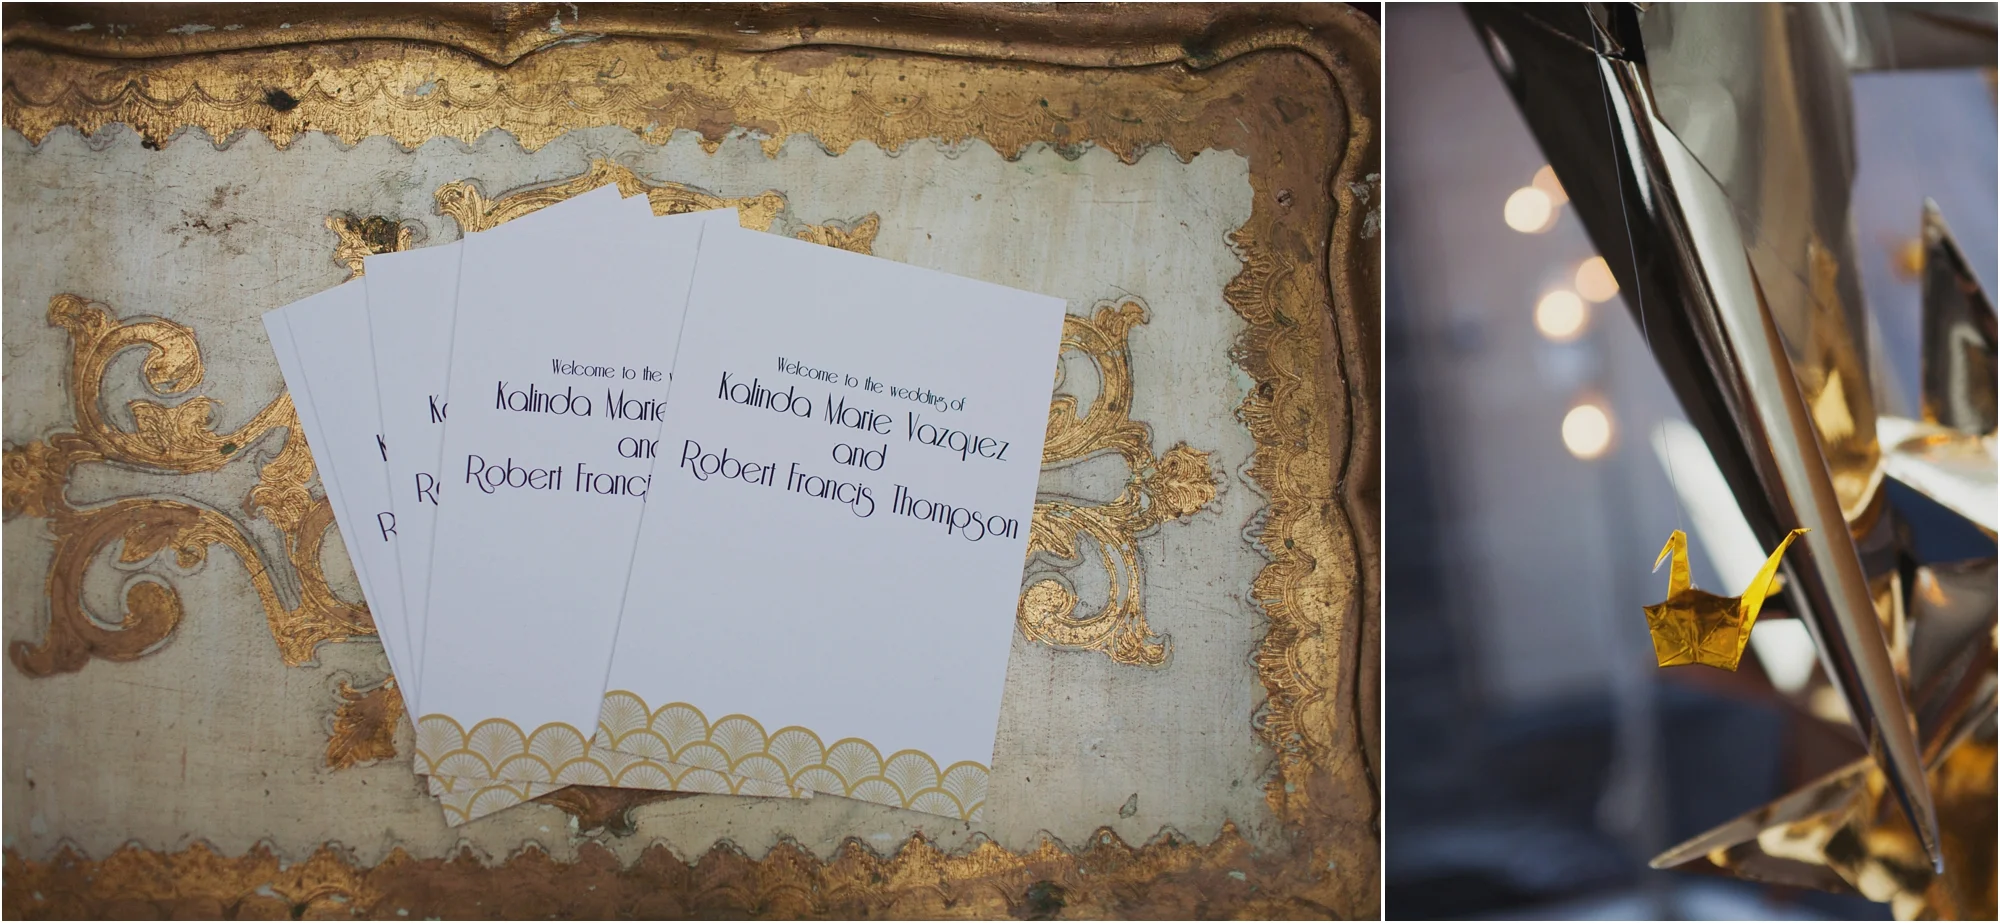 K
R
K
R
Welcome to the
Kalinda Marie
and
Robert Franci
Welcome to the wedding of
Kalinda Marie Vazquez
and
Robert Francis Thompson